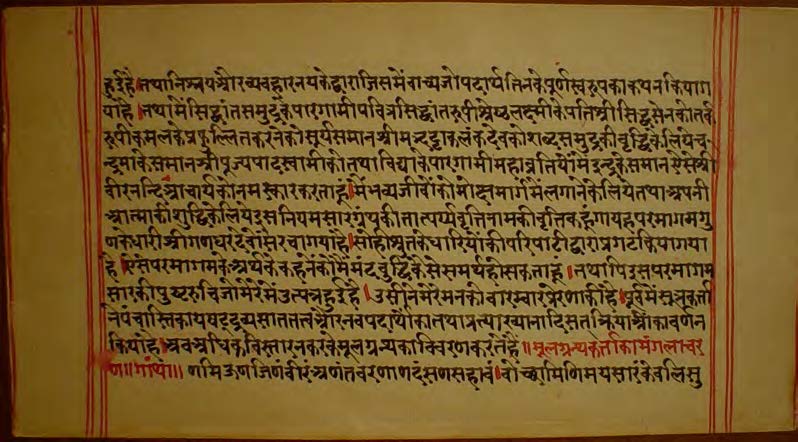 हुईहै।तथानिश्चयऔरव्यवहारनयकेद्वाराजिसमेंवाच्यजोपदार्थतिनकेपूर्णस्वरूपकाकथनकियाग
याहै।तथामेंसिद्धांतसमुद्रकेपारगामीपवित्रसिद्धांतरूपीश्रेष्टलक्ष्मीकेपतिश्रीसिद्धसेनकोतर्क
रूपीकमलकेप्रफुल्लितकरनेकोसूर्यसमानश्रीमद्भट्टाकलंकदेवकोशब्दसमुद्रकीवृद्धिकेलियेच
न्द्रमाकेसमानश्रीपूज्यपादस्वामीकोतथाविद्याकेपारगामीमहाव्रतियोंमेंइन्द्रकेसमानऐसेश्री
वीरनन्दिआचार्यकोनमस्कारकरताहूं।मेंभव्यजीवोंकोमोक्षमार्गमेंलगानेकेलियेतथाअपनी
आत्माकीशुद्धिकेलियेइसनियमसारग्रंथकीतात्पर्यवृत्तिनामकीवृत्तिकहूंगायहपरमागमगु
णकेधारीश्रीगणधरदेवोंसेरचागयाहै।सोहीश्रुतकेधारियोंकीपरिपाटीद्वाराप्रगटकियागया
है।ऐसेपरमागमकेअर्थकेकहनेकोमेंमंदबुद्धिकैसेसमर्थहोसकताहूं।तथापिइसपरमागम
सारकीपुष्टरुचिजोमेरेमेंउत्पन्नहुईहै।उसीनेमेरेमनकोबारम्बारप्रेरणाकीहै।पूर्वमेंसूत्रकर्ता
नेपंचास्तिकायषट्द्रव्यसाततत्त्वऔरनवपदार्थोंकातथाप्रत्याख्यानादिसतक्रियाओंकावर्णन
कियाहै।अबअधिकविस्तारनकरकेमूलग्रन्थकाविवरणकरतेहैं॥मूलग्रन्थकर्ताकामंगलाचर
ण॥गाथा॥णमिऊणजिणंवीरंअणंतवरणाणदंसणसहावं।वोच्छामिणियमसारंकेवलिसु